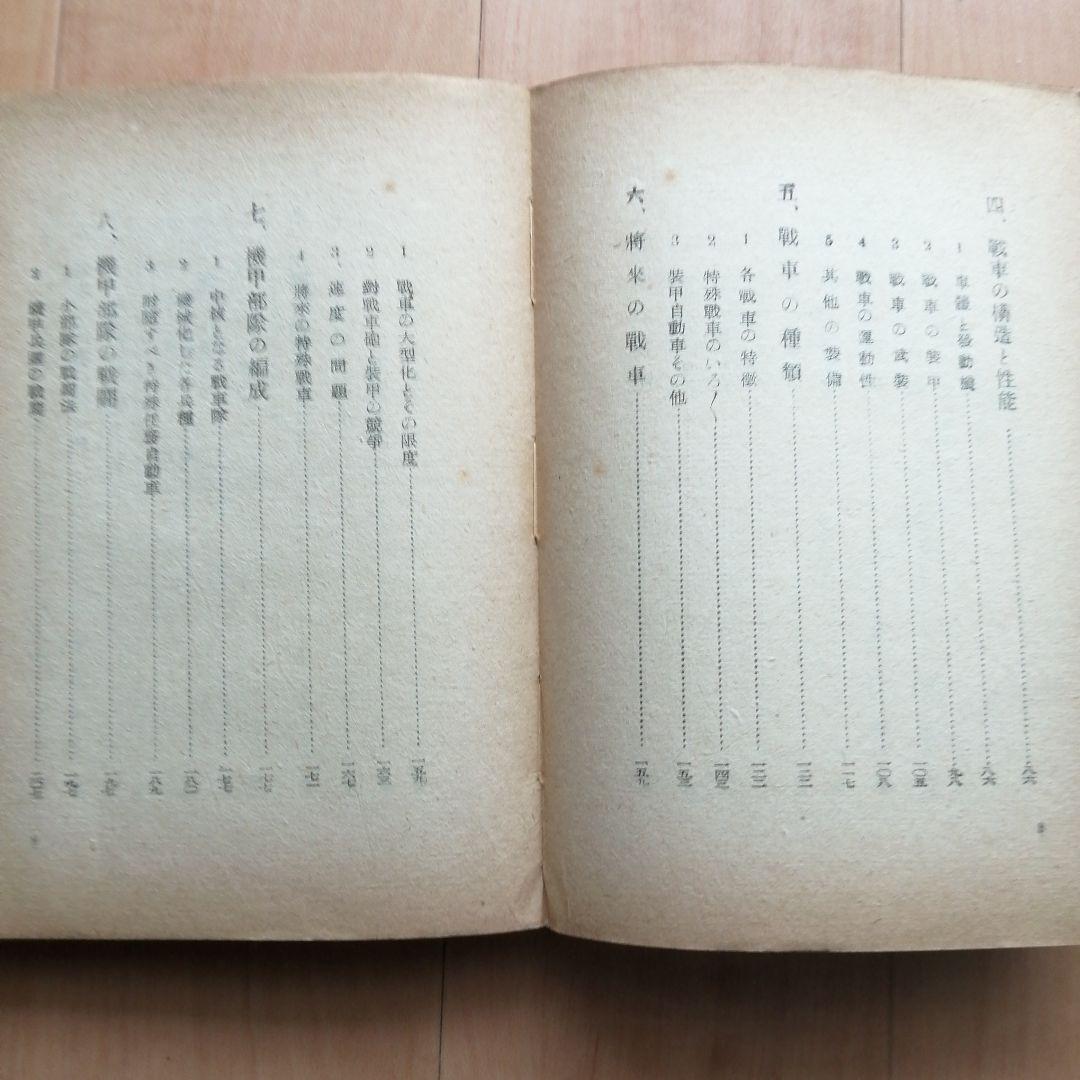 四、戰車の構造と性能……八六
1 車體と發動機……八六
2 戰車の裝甲……九八
3 戰車の武裝……一〇五
4 戰車の運動性……一〇八
5 其他の裝備……一一七
五、戰車の種類
1 各戰車の特徵
2 特殊戰車のいろ〱
3 裝甲自動車その他
六、將來の戰車……一五九
1 戰車の大型化とその限度……一五九
2 對戰車砲と裝甲の競爭
3、速度の問題
4 將來の特殊戰車……一七一
七、機甲部隊の編成
1 中核となる戰車隊
2 機械化した各兵種
3 附隨すべき特殊任務自動車……一八九
八、機甲部隊の戰鬪
1 小部隊の戰鬪法
2 機甲兵團の戰鬪